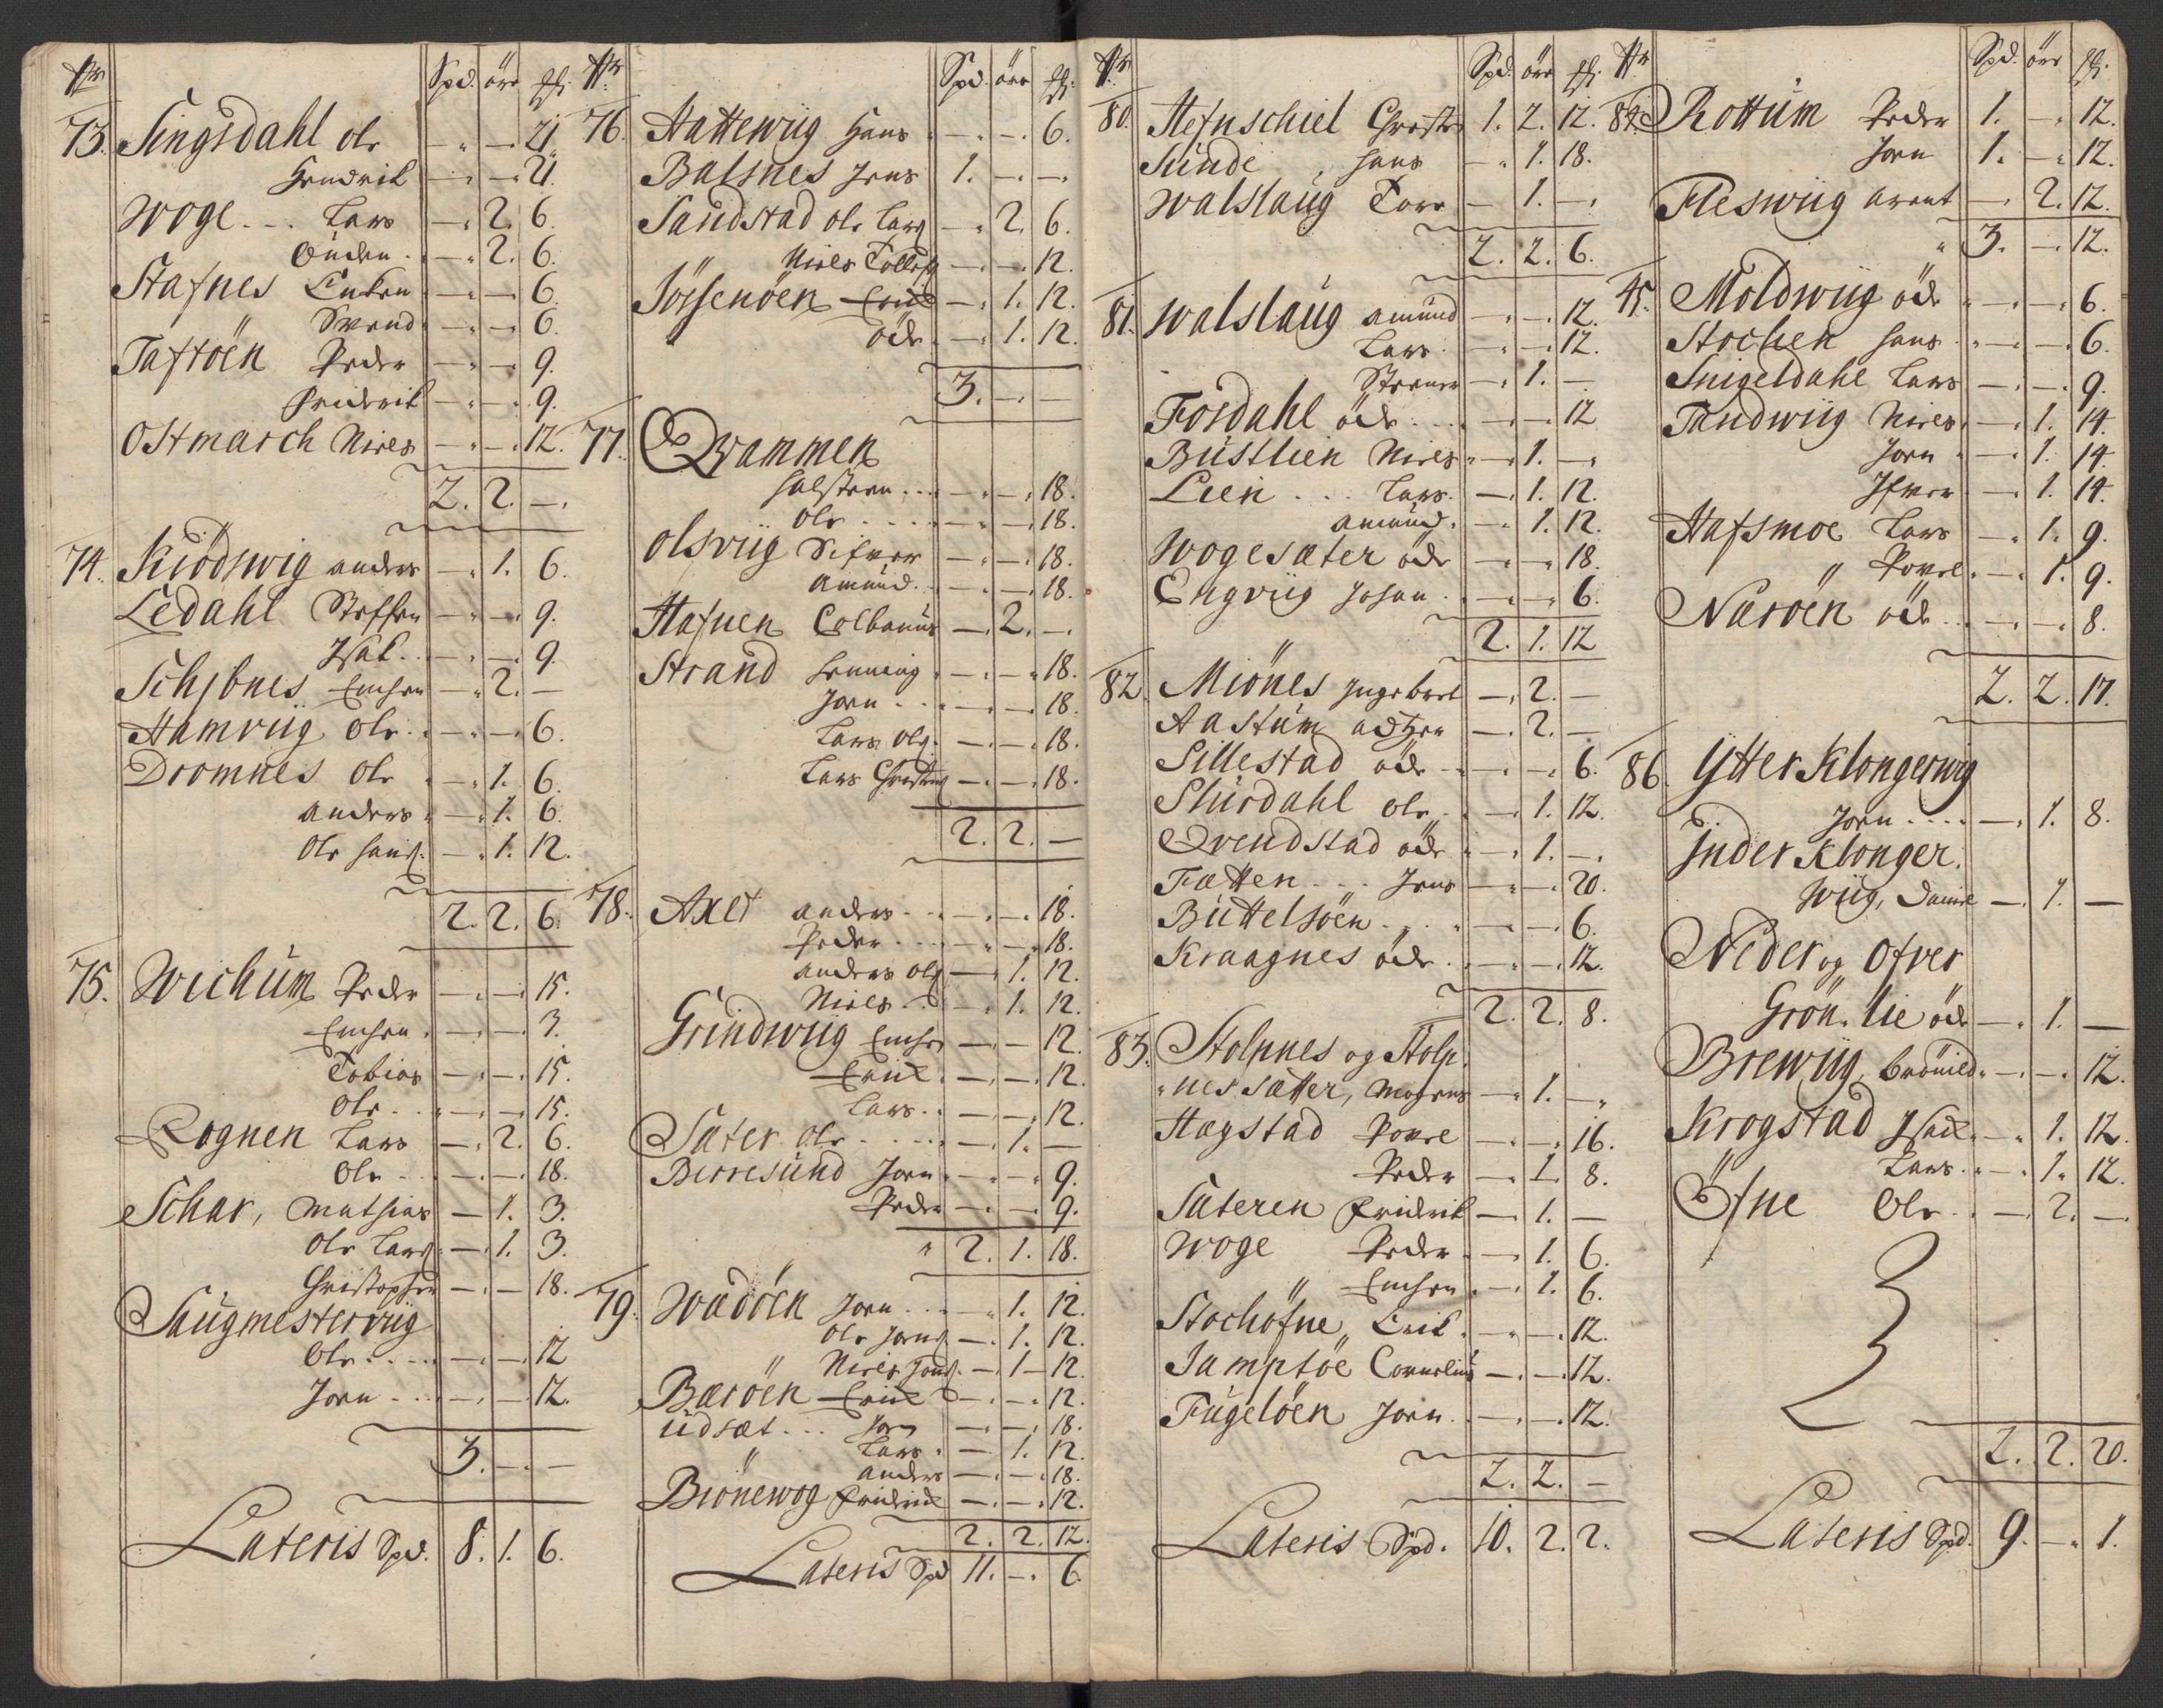 No Spd. öre sh.
73. Singsdahl Ole - - 21
Hendrik - - 21.
Woge Lars - 2. 6.
Önden - 2. 6.
Stafnes Enken - - 6.
" Svend - - 6.
Taftöen Peder - - 9.
Fridrik - - 9.
Ostmarch Niels - - 12.
2. 2. -
74. Kiödswig anders - 1. 6.
Ledahl Steffen - - 9.
Isak - - 9.
Schibnes Enchen - 2. -
Hamvüg Ole - - 6.
Dromnes Ole - 1. 6.
anders - 1. 6.
Ole hans. - 1. 12.
2. 2. 6.
75. Wichüm Peder - - 15.
Enchen - - 3.
Tobias - - 15.
Ole - - 15.
Rognen Lars - 2. 6.
Ole - - 18.
Schar, Mathias - 1. 3.
Ole Lars. - 1. 3.
Christopher - - 18.
Saugmestervüg
Ole - - 12
Jon - - 12.
3. - -
Lateris Spd. 8. 1. 6.
No Spd. öre sh.
76. Hattewüg Hans - - 6.
Balsnes Jens 1. - -
Sandstad Ole Lars. - 2. 6.
" Niels Tollefs. - - 12.
Jössenöen Erick - 1. 12.
öde - 1. 12.
3. - -
77. Qvammen
halsteen - - 18.
Ole - - 18.
Olsvüg Sifver - - 18.
Amund - - 18.
Hafnen Colbanus - 2. -
Strand henning - - 18.
Jon - - 18.
Lars Ols. - - 18.
Lars Christens. - - 18.
2. 2. -
78. Axet anders - - 18.
Peder - - 18.
anders Ols. - 1. 12.
Niels - 1. 12.
Grindwüg Enche - - 12.
Erick - - 12.
Lars - - 12.
Säter Ole - 1. -
Berresund Jon - - 9.
Peder - - 9.
" 2. 1. 18.
79. Wadöen Jon - 1. 12.
Ole Jons. - 1. 12.
" Niels Jons. - 1 - 12.
Bæröen Erick - - 12.
üdsæt Jon - - 18.
" Lars - 1. 12.
anders - - 18.
Biönewog Fridrick - - 12.
2. 2. 12.
Lateris Spd 11. - 6.
No Spd. öre sh.
80. Hefnschiel Christe 1. 2. 12.
Sünde, hans - 1. 18.
Walslaug Tore - 1. -
2. 2. 6.
81. Walslaug amund - - 12.
Lars - - 12.
Steener - 1. -
Fosdahl öde - - 12
Büstlien Niels - 1. -
Leen Lars - 1. 12.
amund - 1. 12.
Wogesæter öde - - 18.
Engvüg Johan - - 6.
2. 1. 12
82. Miönes Ingebret - 2. -
Aastüm - 2. -
Sillestad öde - - 6.
Slürdahl Ole - 1. 12.
Qvendstad öde - 1. -
Fætten Jens - - 20.
Büttelsöen - - 6.
Kraagnes öde - - 12.
2. 2. 8.
83. Stolpnes og Stolp-
nes sætter, Mogens - 1. -
Hagstad Povel - - 16.
Peder - 1. 8.
Säteren Fridrik - 1. -
Woge Peder - 1. 6.
" Enchen - 1. 6.
Stochöfne " Erik - - 12.
Jamptöe Cornelius - - 12.
Fügelöen Jon - - 12.
2. 2. -
Lateris Spd. 10. 2. 2.
No Spd. öre sh.
84. Rottüm Peder 1. - 12.
Jon 1. - 12.
Fleswüg arent - 2. 12.
" 3. - 12.
45. Moldwüg öde - - 6.
Stochen hans - - 6.
Snigeldahl Lars - - 9.
Tandwüg Niels - 1. 14.
Jon - 1. 14.
Ifver - 1. 14.
Hafsmoe Lars - 1. 9.
" Povel - 1. 9.
Naröen öde - - 8.
2. 2. 17.
86. Ytter Klongerwig
Jon - 1. 8.
Inder Klonger
wüg, Daniel - 1. -
Neder og Ofver
Grön. lie öde - 1. -
Brewüg, brönild - - 12.
Krogstad Isack - 1. 12.
" Lars - 1. 12.
Öfne Ole - 2. -
2. 2. 20.
Lateris Spd. 9. - 1.